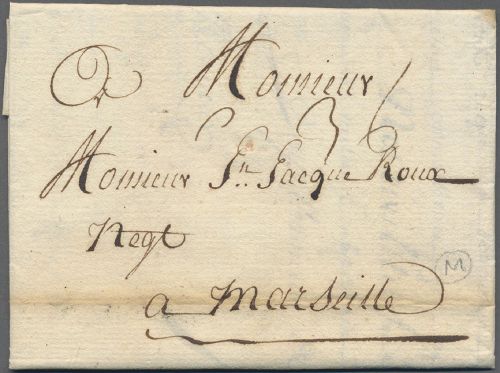 Monsieur
Monsieur Jn. Jacque Roux
Negt
a Marseille
M